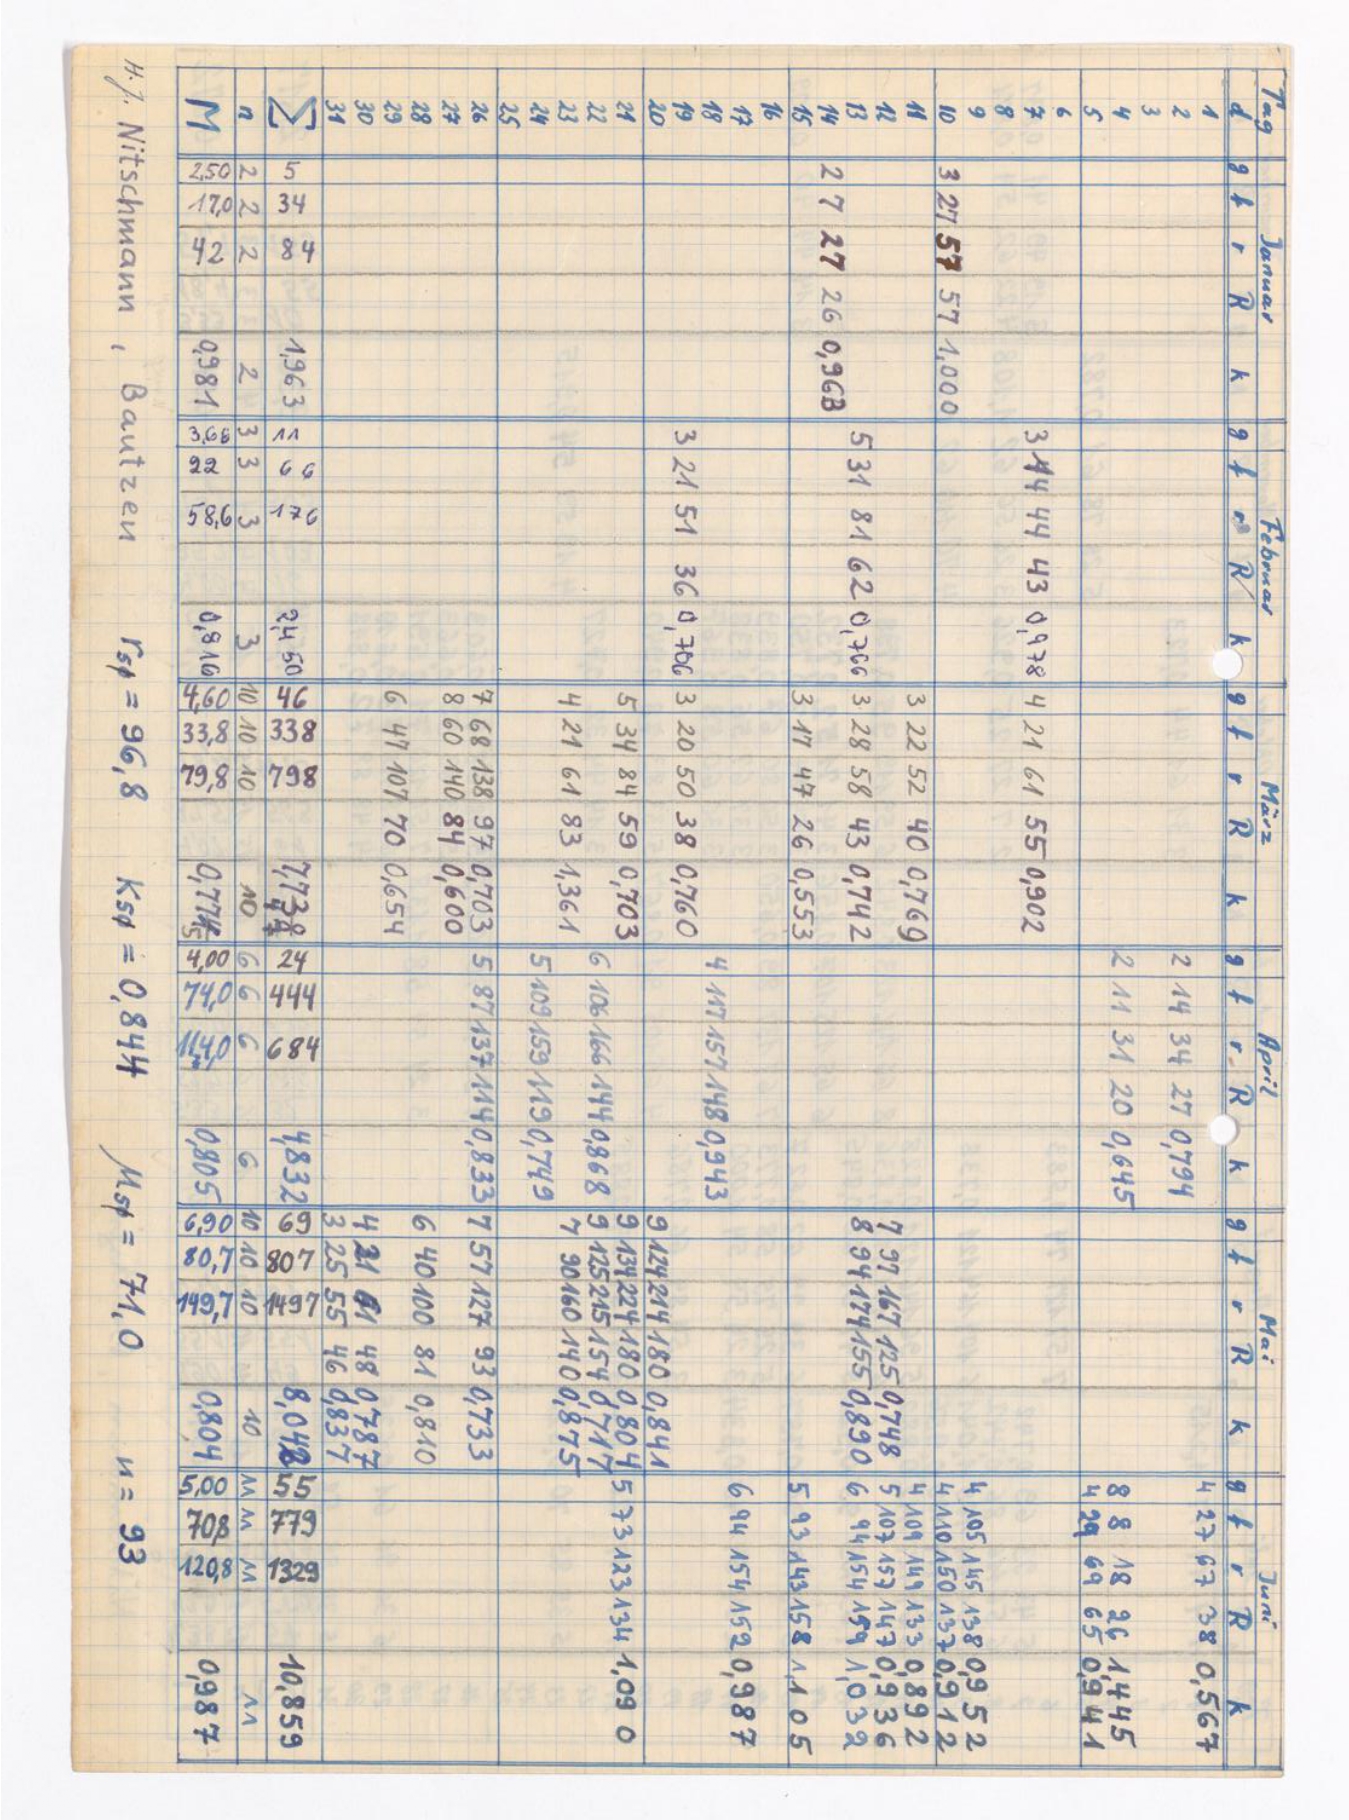 Tag Januar Februar März April Mai Juni
d g f r R k g f r R k g f r R k g f r R k g f r R k g f r R k
1 4 27 67 38 0,567
2 2 14 34 27 0,794
3
4 2 11 31 20 0,645 8 8 18 26 1,445
5 4 29 69 65 0,941
6
7 3 14 44 43 0,978 4 21 61 55 0,902
8
9 4 105 145 138 0,952
10 3 27 57 57 1,000 4 110 150 137 0,912
11 3 22 52 40 0,769 4 109 149 133 0,892
12 7 97 167 125 0,748 5 107 157 147 0,936
13 5 31 81 62 0,766 3 28 58 43 0,742 8 94 174 155 0,890 6 94 154 159 1,032
14 2 7 27 26 0,963
15 3 17 47 26 0,553 5 93 143 158 1,105
16
17 6 94 154 152 0,987
18 4 117 157 148 0,943
19 3 21 51 36 0,706 3 20 50 38 0,760
20 9 124 214 180 0,841
21 5 34 84 59 0,703 9 134 224 180 0,804 5 73 123 134 1,090
22 6 106 166 144 0,868 9 125 215 154 0,717
23 4 21 61 83 1,361 7 90 160 140 0,875
24 5 109 159 119 0,749
25
26 7 68 138 97 0,703 5 87 137 114 0,833 7 57 127 93 0,733
27 8 60 140 84 0,600
28 6 40 100 81 0,810
29 6 47 107 70 0,654
30 4 21 61 48 0,787
31 3 25 55 46 0,837
Σ 5 34 84 1,963 11 66 176 2,450 46 338 798 24 444 684 4,832 69 807 1497 8,042 55 779 1329 10,859
n 2 2 2 2 3 3 3 3 10 10 10 10 6 6 6 6 10 10 10 10 11 11 11 11
M 2,50 17,0 42 0,981 3,66 22 58,6 0,816 4,60 33,8 79,8 4,00 74,0 114,0 0,805 6,90 80,7 149,7 0,804 5,00 70,8 120,8 0,987
H.J. Nitschmann, Bautzen rsp = 96,8 Ksp = 0,8444 Msp = 71,0 n = 93